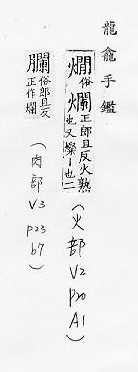 龍龕手鑑
燗俗爛正郎旦反火熟也又燦丨也二
(火部 V2 P20 A1)
俗郎旦反正作爛
(肉部 V3 P23 b7)